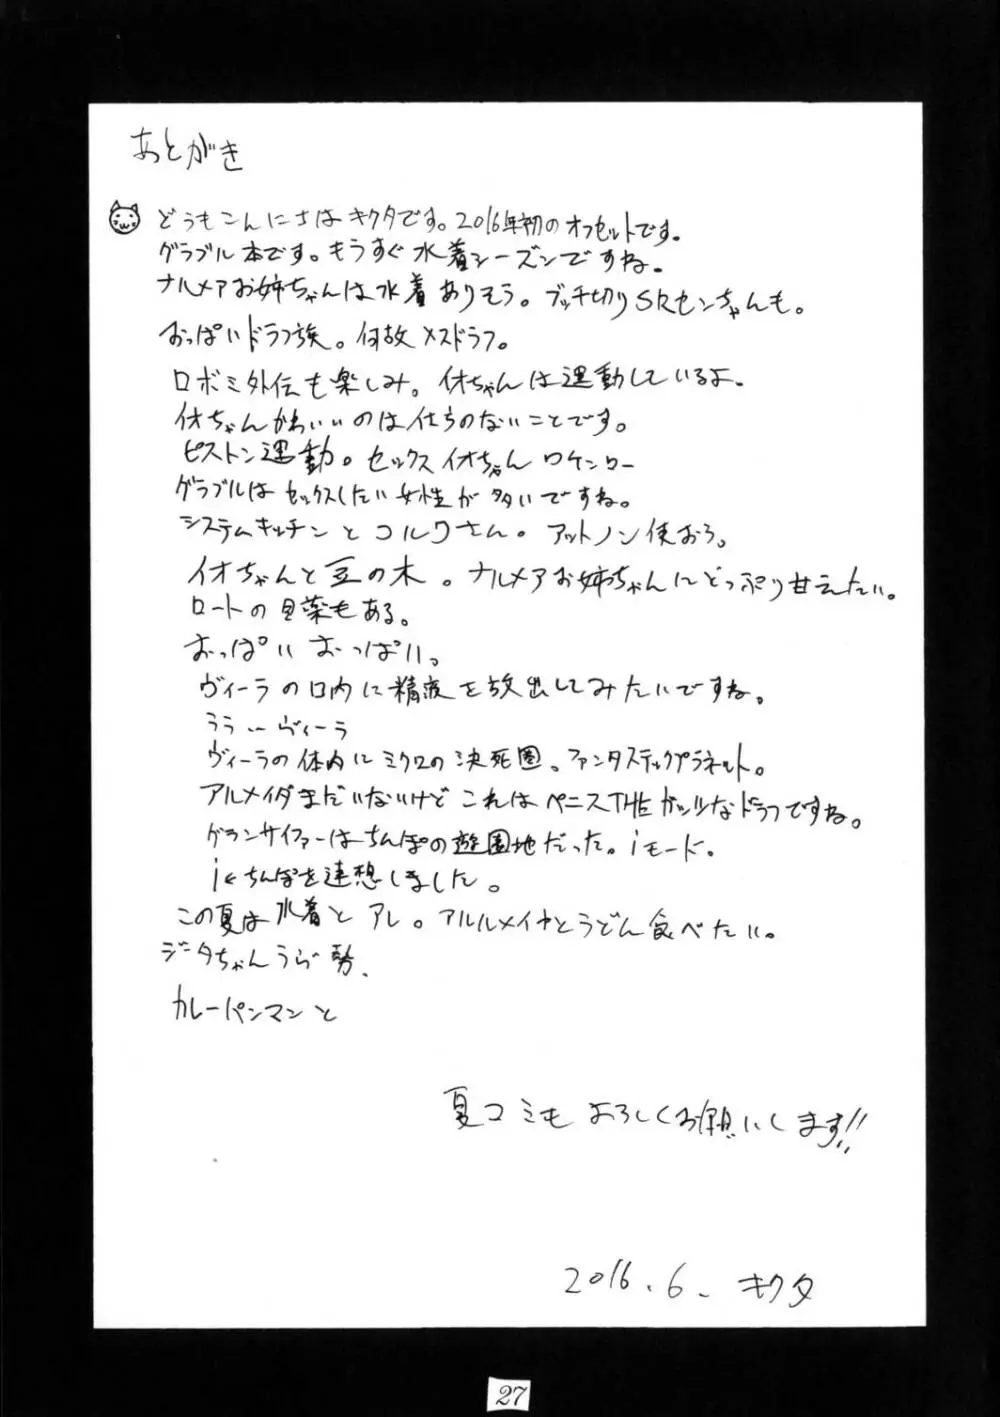 あとがき
どうもこんにちはキクタです。2016年初のオフセットです。
グラブル本です。もうすぐ水着シーズンですね。
ナルメアお姉ちゃんは水着ありそう。ブッチ切りSRセンちゃんも。
おっぱいドラフ族。何故メスドラフ。
ロボミ外伝も楽しみ。
グラブルはセックスしたい女性が多いですね。
システムキッチンとコルワさん。アットノン使おう。
ナルメアお姉ちゃんにどっぷり甘えたい。
ロートの目薬もある。
おっぱいおっぱい。
ヴィーラの口内に精液を放出してみたいですね。
ララ…ヴィーラ
ヴィーラの体内にミクロの決死圏。ファンタスティックプラネット。
アルメイダまだいないけどこれはペニスTHEガッツなドラフですね。
グランサイファーはちんぽの遊園地だった。iモード。
i←ちんぽを連想しました。
この夏は水着とアレ。アルルメイヤとうどん食べたい。
カレーパンマンと
夏コミもよろしくお願いします!!
2016.6. キクタ
27